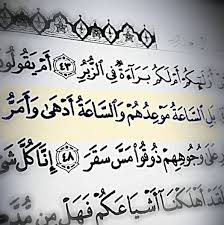 أُو۟لَٰٓئِكُمْ أَمْ لَكُم بَرَآءَةٌ فِى ٱلزُّبُرِ ٤٣ أَمْ يَقُولُو
بَلِ ٱلسَّاعَةُ مَوْعِدُهُمْ وَٱلسَّاعَةُ أَدْهَىٰ وَأَمَرُّ
عَلَىٰ وُجُوهِهِمْ ذُوقُوا۟ مَسَّ سَقَرَ ٤٨ إِنَّا كُلَّ شَىْ
قَدْ أَهْلَكْنَآ أَشْيَاعَكُمْ فَهَلْ مِن مُّدَّ